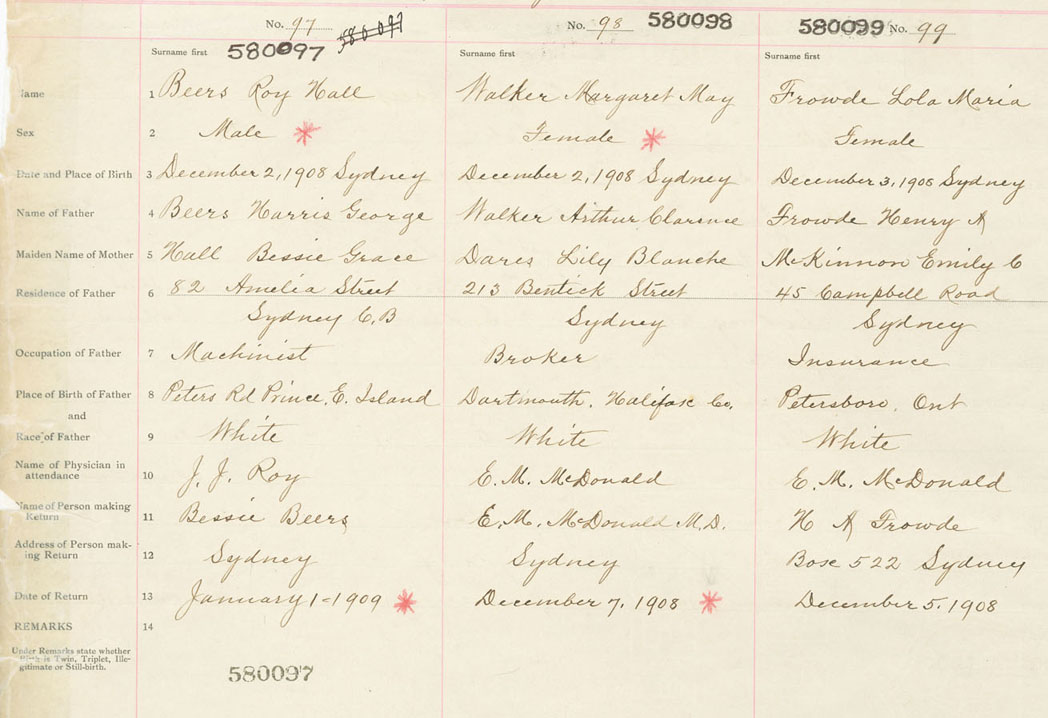 No. 97 580097 No. 98 580098 580099 No. 99
580097
Surname first Surname first Surname first
Name 1 Beers Roy Hall Walker Margaret May Frowde Lola Maria
Sex 2 Male Female Female
Date and Place of Birth 3 December 2, 1908 Sydney December 2, 1908 Sydney December 3, 1908 Sydney
Name of Father 4 Beers Harris George Walker Arthur Clarence Frowde Henry A
Maiden Name of Mother 5 Hall Bessie Grace Dares Lily Blanche McKinnon Emily C
Residence of Father 6 82 Amelia Street 213 Bentick Street 45 Campbell Road
Sydney C.B Sydney Sydney
Occupation of Father 7 Machinist Broker Insurance
Place of Birth of Father 8 Peters Rd Prince. E. Island Dartmouth. Halifax Co. Petersboro. Ont
and
Race of Father 9 White White White
Name of Physician in
attendance 10 J. J. Roy E. M. McDonald E. M. McDonald
Name of Person making
Return 11 Bessie Beers E. M. McDonald M.D. H A Frowde
Address of Person mak-
ing Return 12 Sydney Sydney Box 522 Sydney
Date of Return 13 January 1-1909 December 7. 1908 December 5. 1908
REMARKS 14
Under Remarks state whether
is Twin, Triplet, Ille-
gitimate or Still-birth.
580097